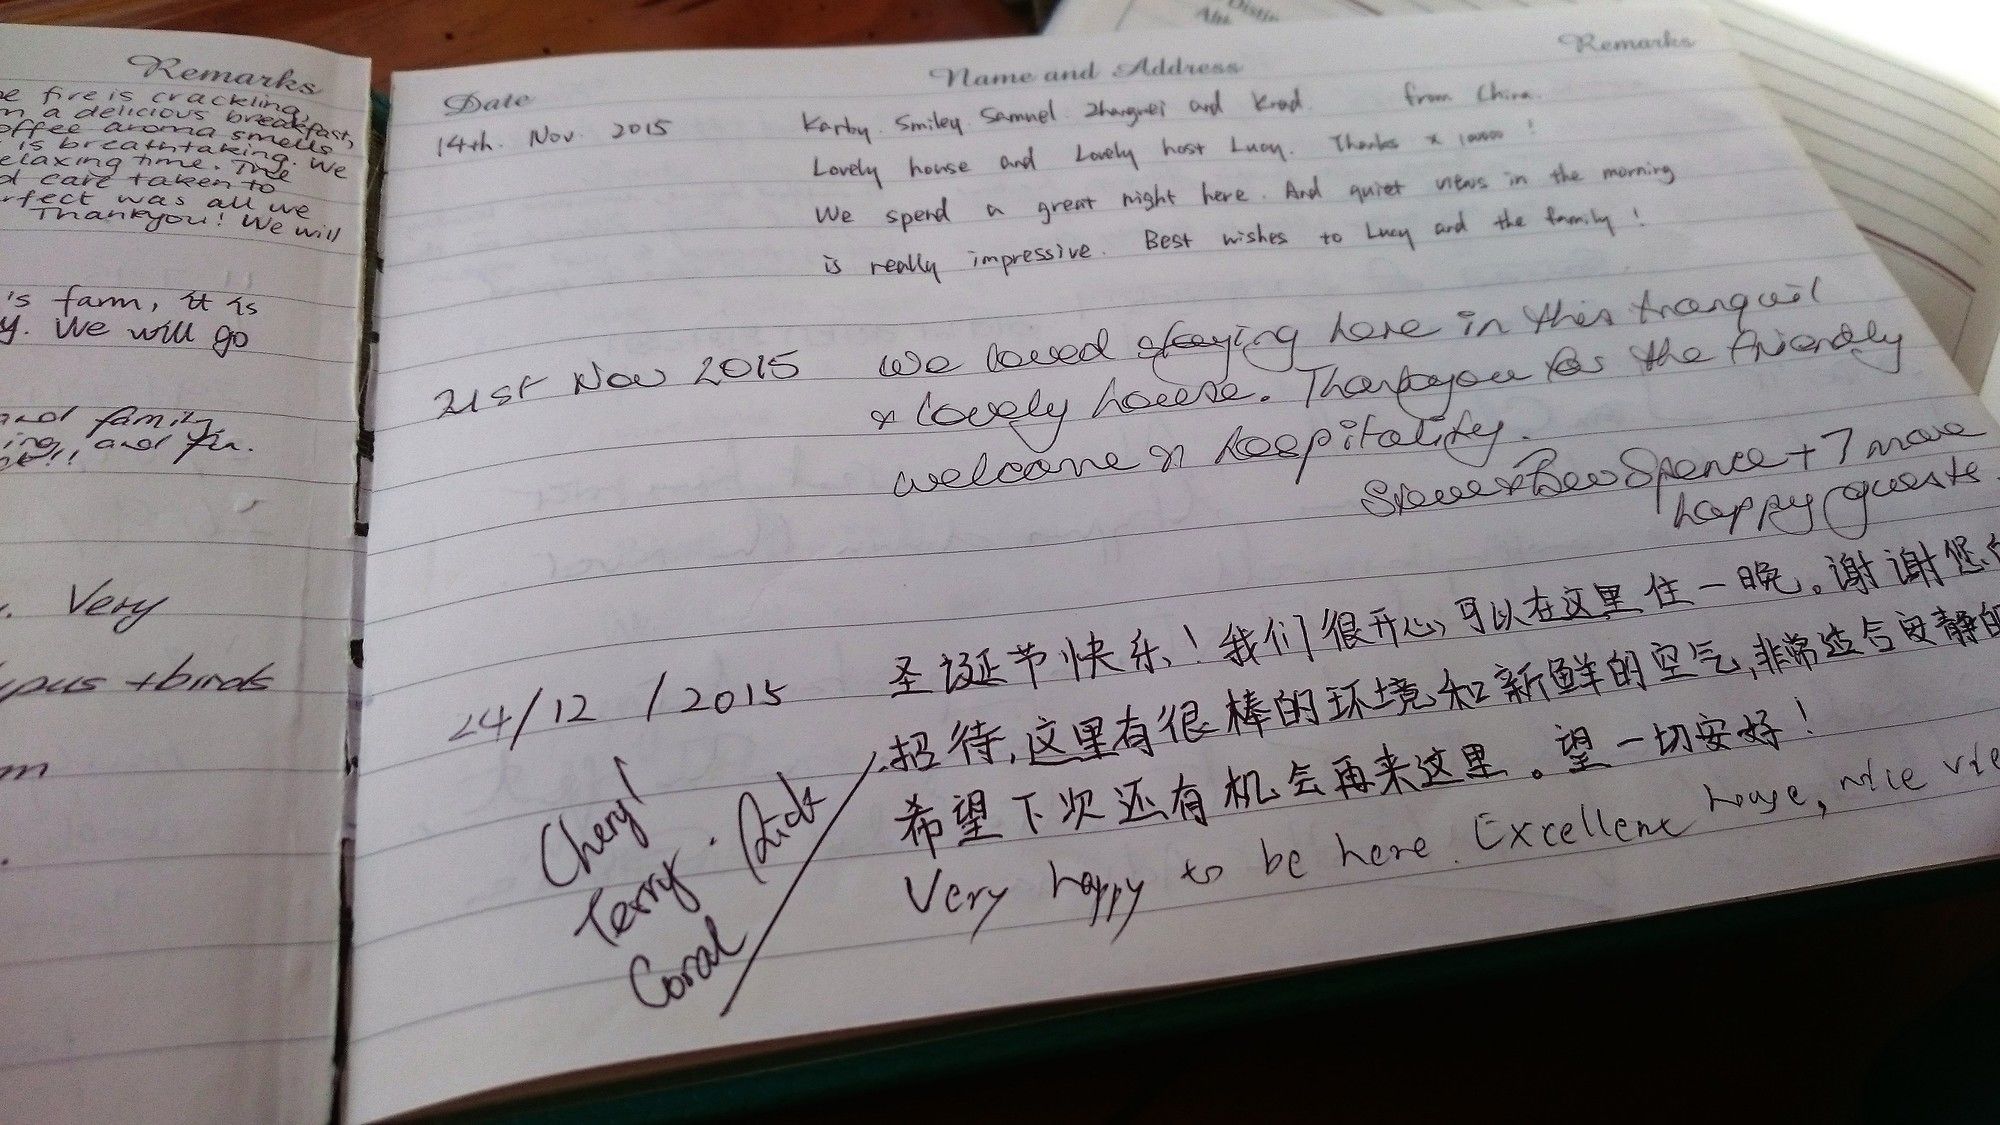 Remarks
fire is crackling,
a delicious breakfast,
coffee aroma smells
is breathtaking. We
relaxing time. The
care taken to
perfect was all we
Thankyou! We will
's farm, it is
We will go
and family,
and fun.
Very
+ birds
Date Name and Address Remarks
14th. Nov. 2015 Karby. Smiley. Samuel. Zhangwei and Krad. from China.
Lovely house and Lovely host Lucy. Thanks x 10000 !
We spend a great night here. And quiet views in the morning
is really impressive. Best wishes to Lucy and the family !
21st Nov 2015 We loved staying here in this tranquil
& lovely house. Thankyou for the friendly
welcome & hospitality.
Steve & Bev Spence + 7 more
happy guests.
24/12/2015 圣诞节快乐！我们很开心，可以在这里住一晚。谢谢您的
招待，这里有很棒的环境和新鲜的空气，非常适合安静的
希望下次还有机会再来这里。望一切安好！
Very happy to be here. Excellent house, nice
Cheryl
Terry. Rick
Coral